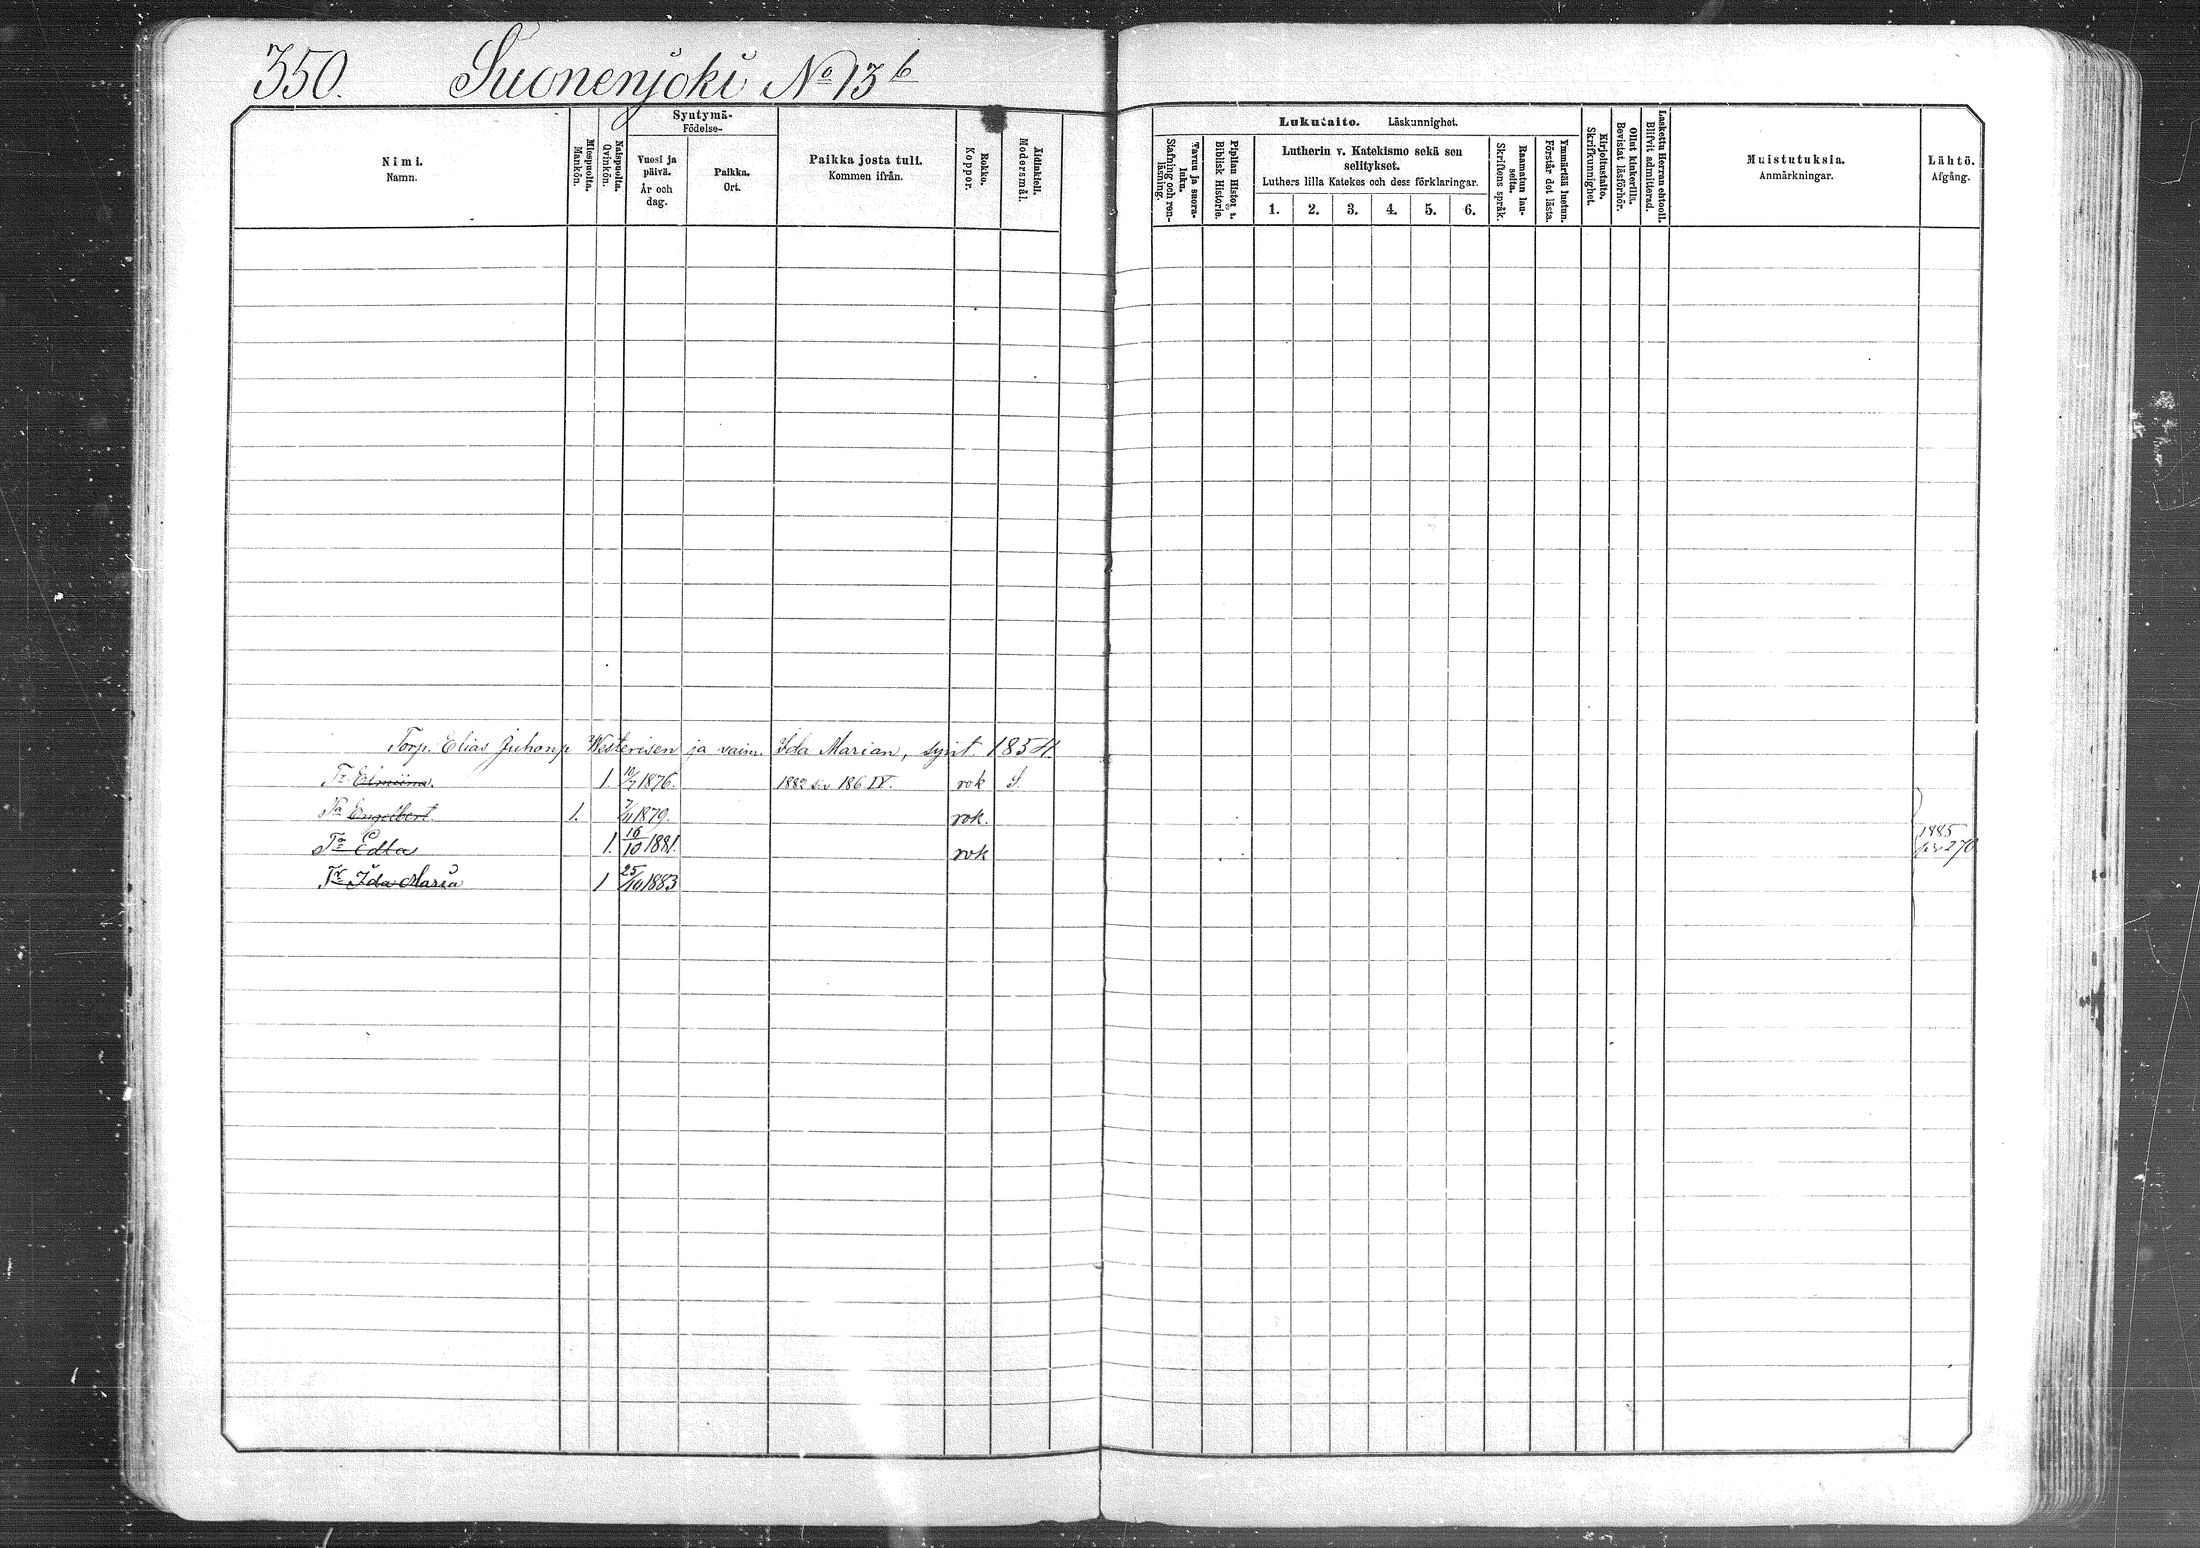 350. Suonenjoki No 13 b
Nimi.
Namn.
Miespuolta.
Mankön.
Naispuolta.
Qvinkön.
Syntymä-
Födelse-
Vuosi ja
päivä.
År och
dag.
Paikka.
Ort.
Paikka josta tuli.
Kommen ifrån.
Rokko.
Koppor.
Äidinkieli.
Modersmål.
Lukutaito. Läskunnighet.
Tavuu ja suora-
luku.
Stafning och ren-
läsning.
Piplian Histor a.
Biblisk Historie.
Lutherin v. Katekismo sekä sen
selitykset.
Luthers lilla Katekes och dess förklaringar.
1. 2. 3. 4. 5. 6.
Raamatun lau-
seita.
Skriftens språk.
Ymmärtää luetun.
Förstår det lästa.
Kirjoitustaito.
Skrifkunnighet.
Ollut kinkerillä.
Bevistat läsförhör.
Laskettu Herran ehtooll.
Blifvit admitterad.
Muistutuksia.
Anmärkningar.
Lähtö.
Afgång.
Torp. Elias Juhanp Westerisen ja vaim. Ida Marian, synt. 1854.
Tr Elmiina. 1. 10/7 1876. 1882 siv 186 IV. rok S.
Pa Engelbert. 1. 7/11 1879. rok.
Tr Edla 1. 16/10 1881. rok
Tr Ida Maria 1 25/10 1883
1885
siv 270